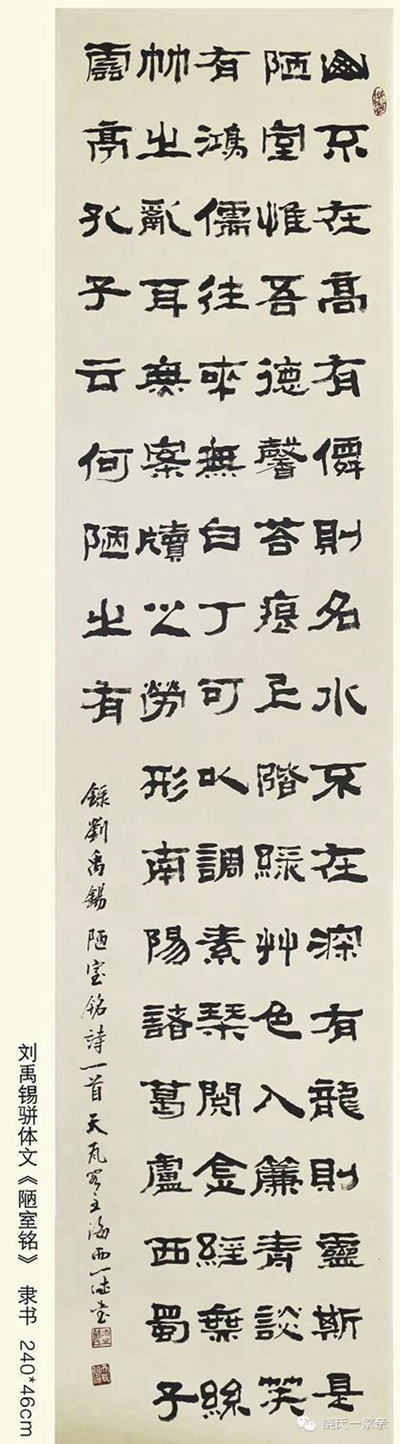 山不在高有僊則名水不在深有龍則靈斯是
陋室惟吾德馨苔痕上階綠艸色入簾青談笑
有鴻儒往來無白丁可以調素琴閱金經無絲
竹之亂耳無案牘之勞形南陽諸葛廬西蜀子
雲亭孔子云何陋之有
錄劉禹錫陋室銘詩一首 天瓦
刘禹锡骈体文《陋室铭》 隶书 240*46cm
饶氏一家亲